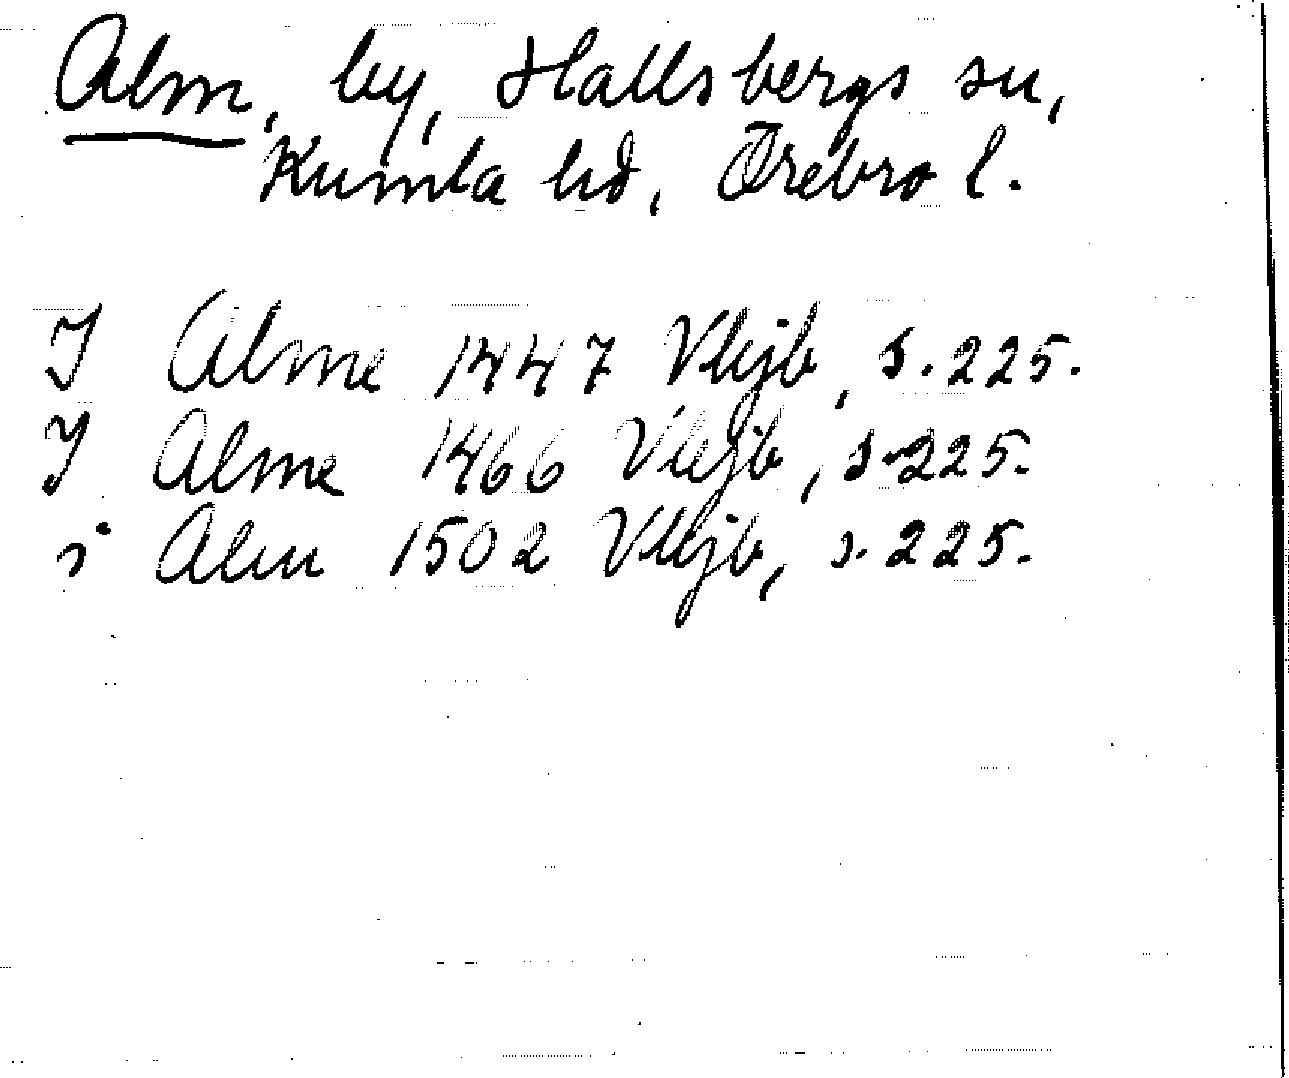 Alm, by, Hallsbergs sn,
Kumla hd, Örebro l.
J Alme 1447 Vlejb, s. 225.
J Alme 1466 Vlejb, s. 225.
i Alm 1502 Vlejb, s. 225.